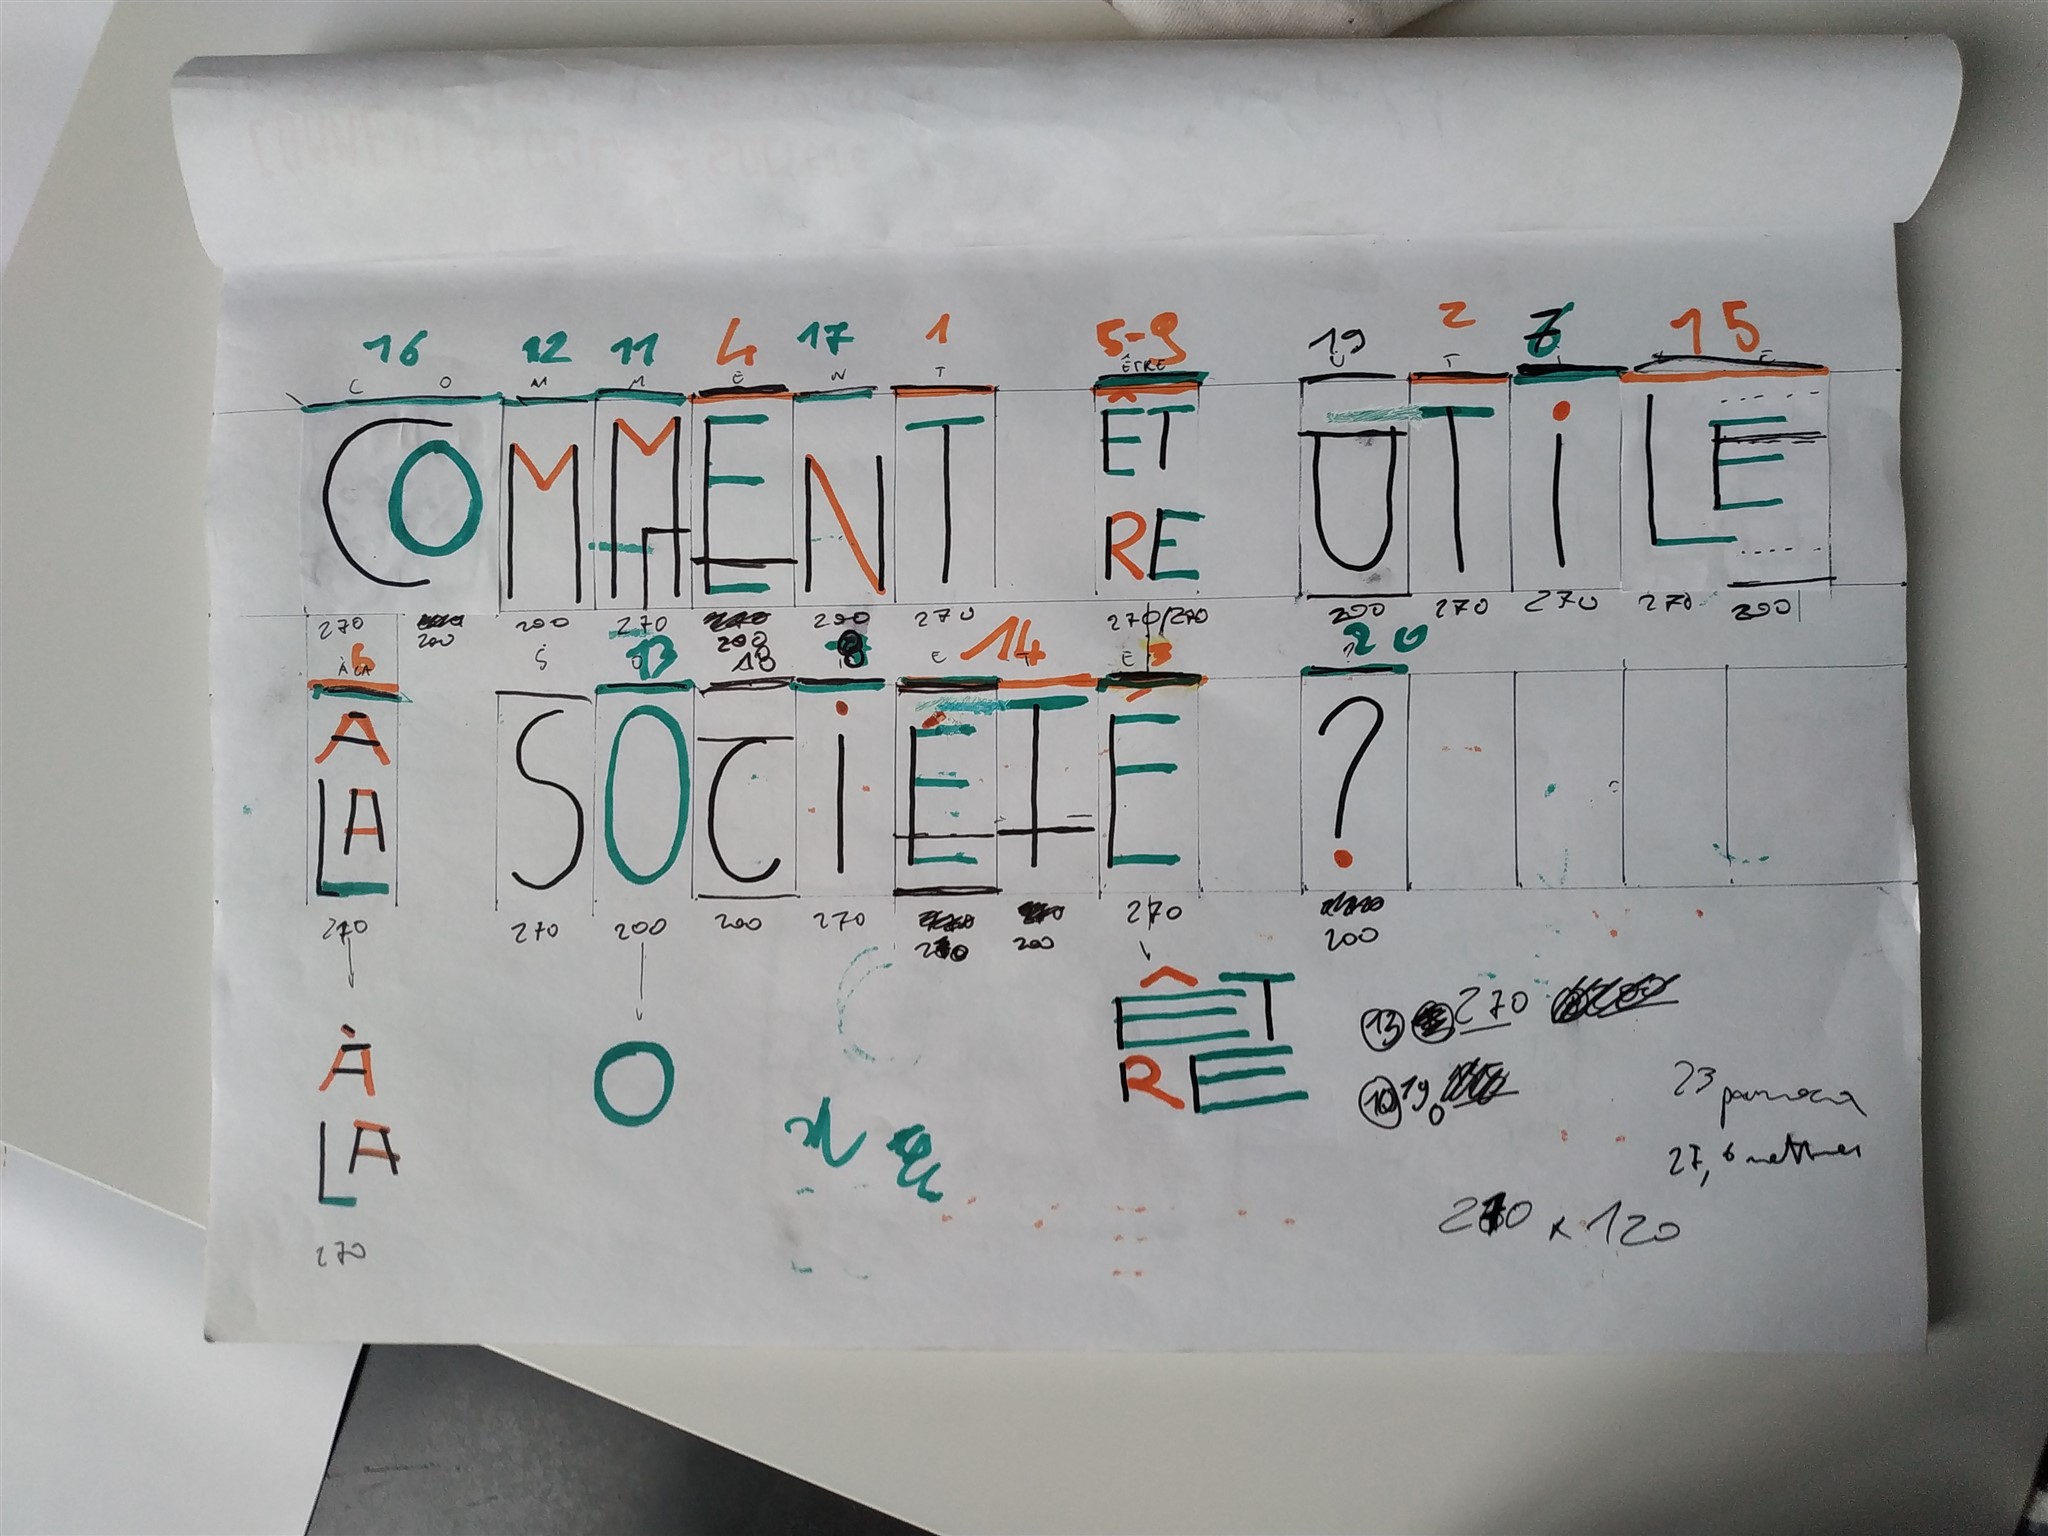 16 12 11 4 17 1 5-9 19 2 15
C O M M E N T ÊTRE U T I L E
COMMENT ÊTRE UTILE
270 200 200 270 200 200 270 270/270 200 270 270 270 200
6 13 18 8 14 3 20
À LA S O I E T E ?
À LA SOCIÉTÉ ?
270 270 200 200 270 270 200 270 200
À LA
270
O
ÊTRE
13 270
10 19
23 panneaux
27,6 mettres
270 x 120